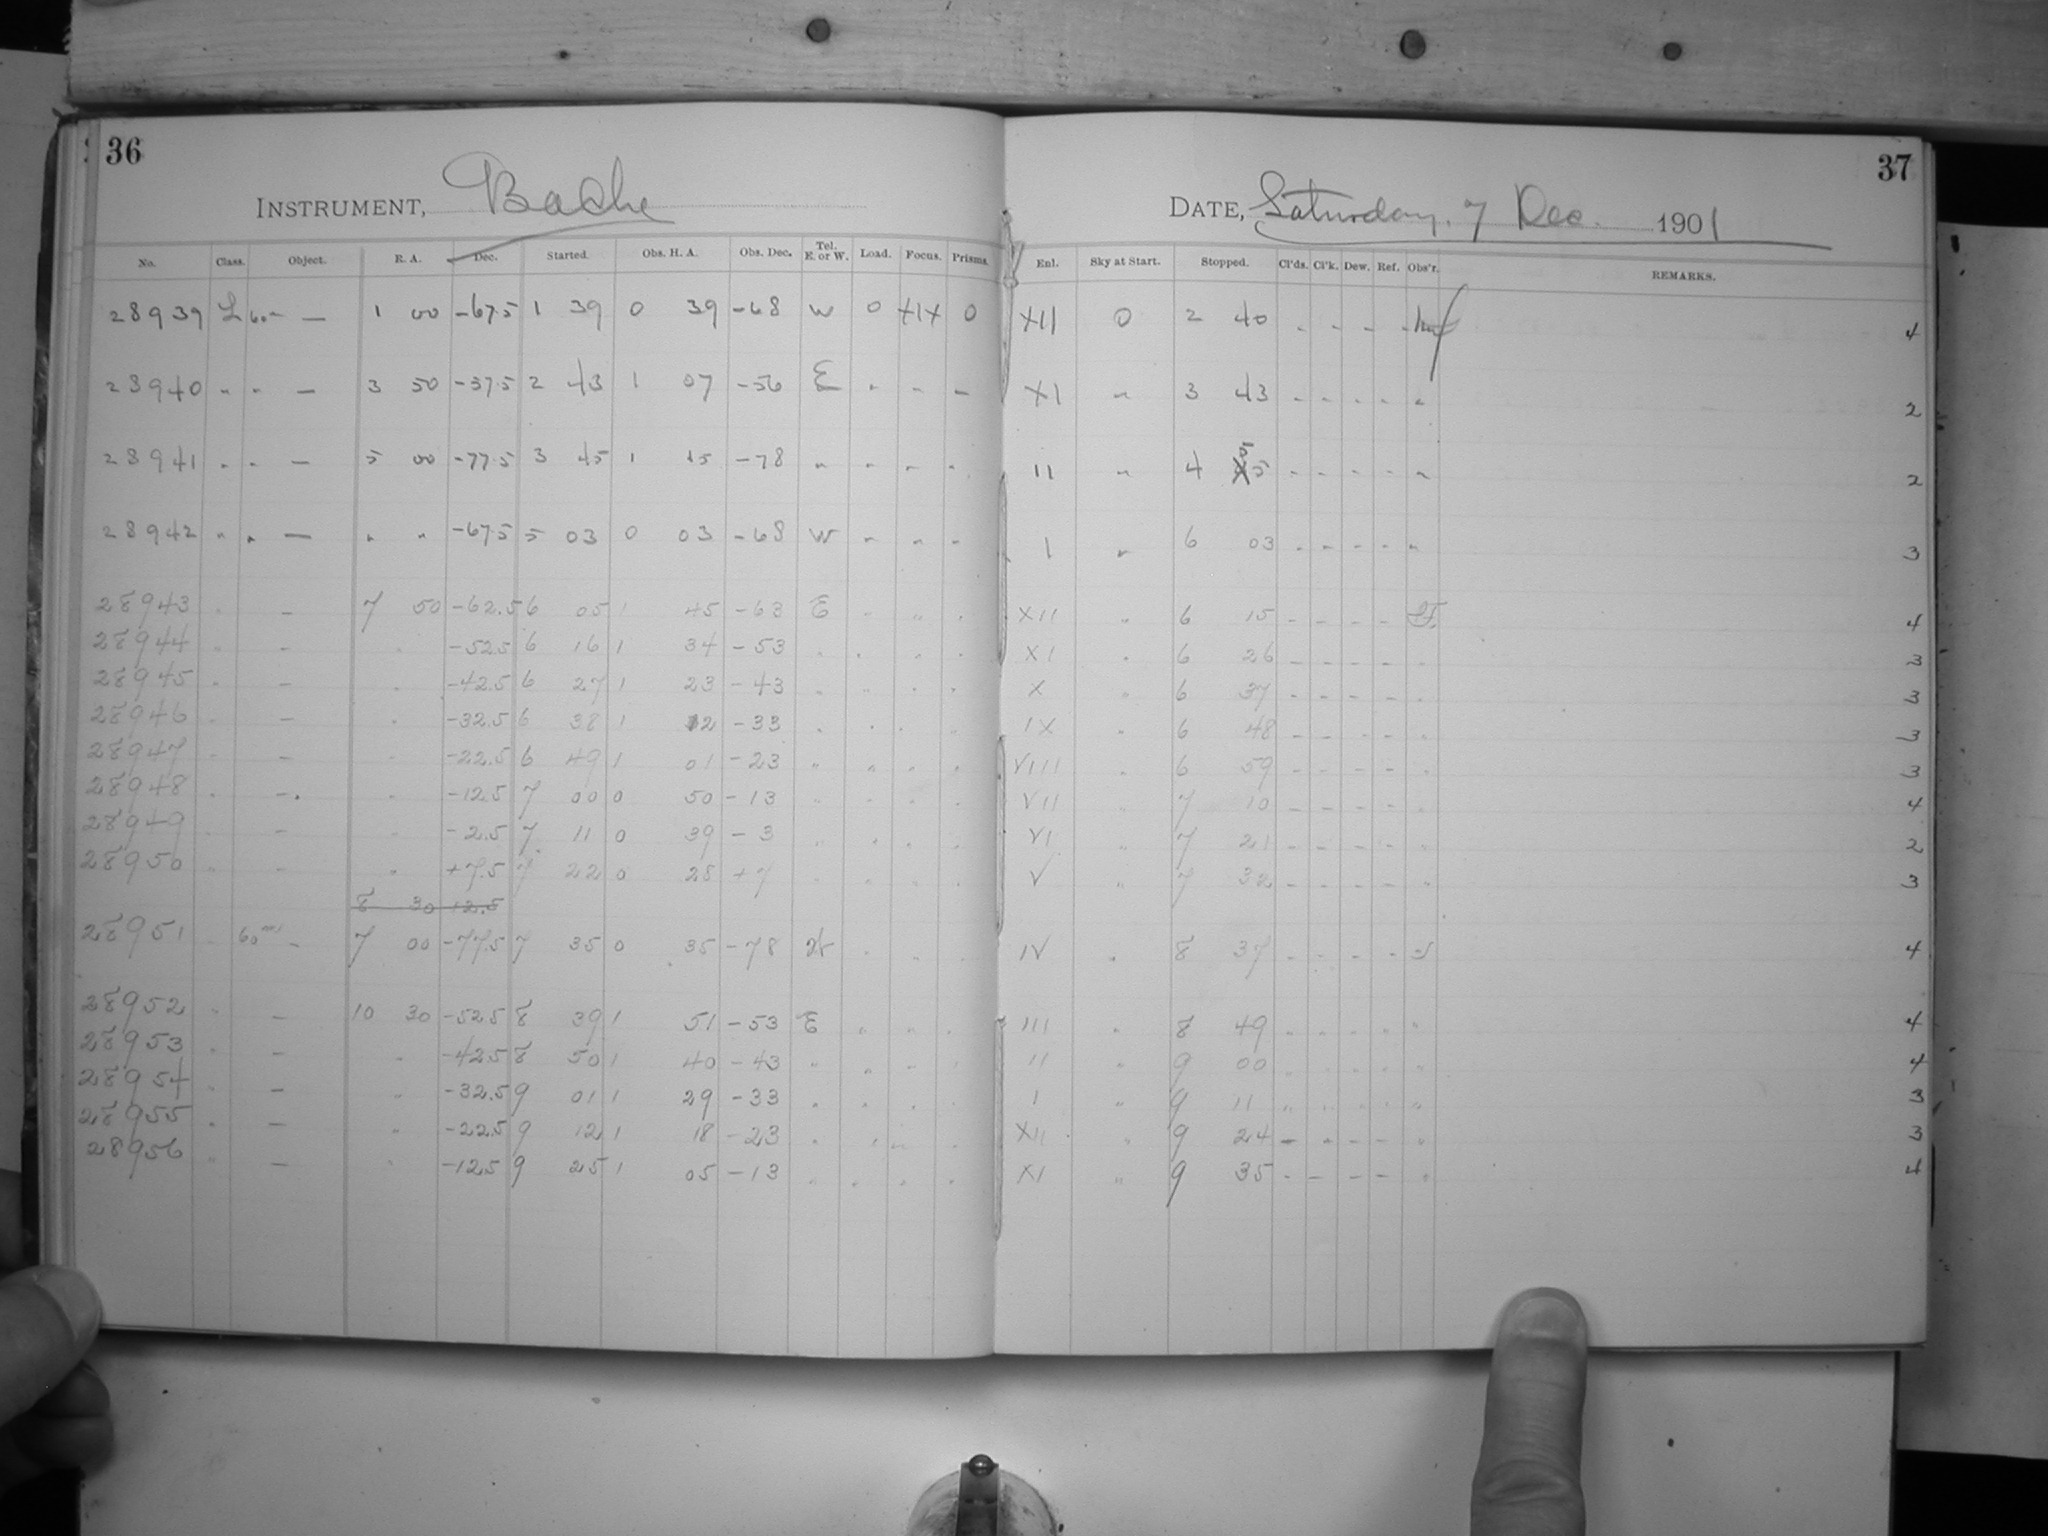 36
INSTRUMENT, Bache
No. Class. Object. R. A. Dec. Started. Obs. H. A. Obs. Dec. Tel. E. or W. Load. Focus. Prisms.
28939 L 60m — 1 00 -67.5 1 39 0 39 -68 W 0 XIX 0
28940 " " — 3 50 -37.5 2 43 1 07 -56 E " - —
28941 " " — 5 00 -77.5 3 45 1 15 -78 " " " " "
28942 " " — " " -67.5 5 03 0 03 -68 W " " "
28943 " — 7 50 -62.5 6 05 1 45 -63 E " " "
28944 " — " -52.5 6 16 1 34 -53 " " " "
28945 " — " -42.5 6 27 1 23 -43 " " " "
28946 " — " -32.5 6 38 1 12 -33 " " " "
28947 " — " -22.5 6 49 1 01 -23 " " " "
28948 " — " -12.5 7 00 0 50 -13 " " " "
28949 " — " -2.5 7 11 0 39 -3 " " " "
28950 " — " +7.5 7 22 0 28 +7 " " " "
8 30 12.5
28951 " 60m — 7 00 -77.5 7 35 0 35 -78 W " " "
28952 " — 10 30 -52.5 8 39 1 51 -53 E " " "
28953 " — " -42.5 8 50 1 40 -43 " " " "
28954 " — " -32.5 9 01 1 29 -33 " " " "
28955 " — " -22.5 9 12 1 18 -23 " " " "
28956 " — " -12.5 9 25 1 05 -13 " " " "
37
DATE, Saturday, 7 Dec. 1901
Enl. Sky at Start. Stopped. Cl'ds. Cl'k. Dew. Ref. Obs'r. REMARKS.
XII 0 2 40 - - - - 4
XI " 3 43 - - - - " 2
II " 4 55 - - - - " 2
I " 6 03 - - - - " 3
XII " 6 15 - - - - 4
XI " 6 26 - - - - " 3
X " 6 37 - - - - " 3
IX " 6 48 - - - - " 3
VIII " 6 59 - - - - " 3
VII " 7 10 - - - - " 4
VI " 7 21 - - - - " 2
V " 7 32 - - - - " 3
IV " 8 37 - - - - 4
III " 8 49 " " " " " 4
II " 9 00 " " " " " 4
I " 9 11 " " " " " 3
XII " 9 24 - - - - " 3
XI " 9 35 - - - - " 4